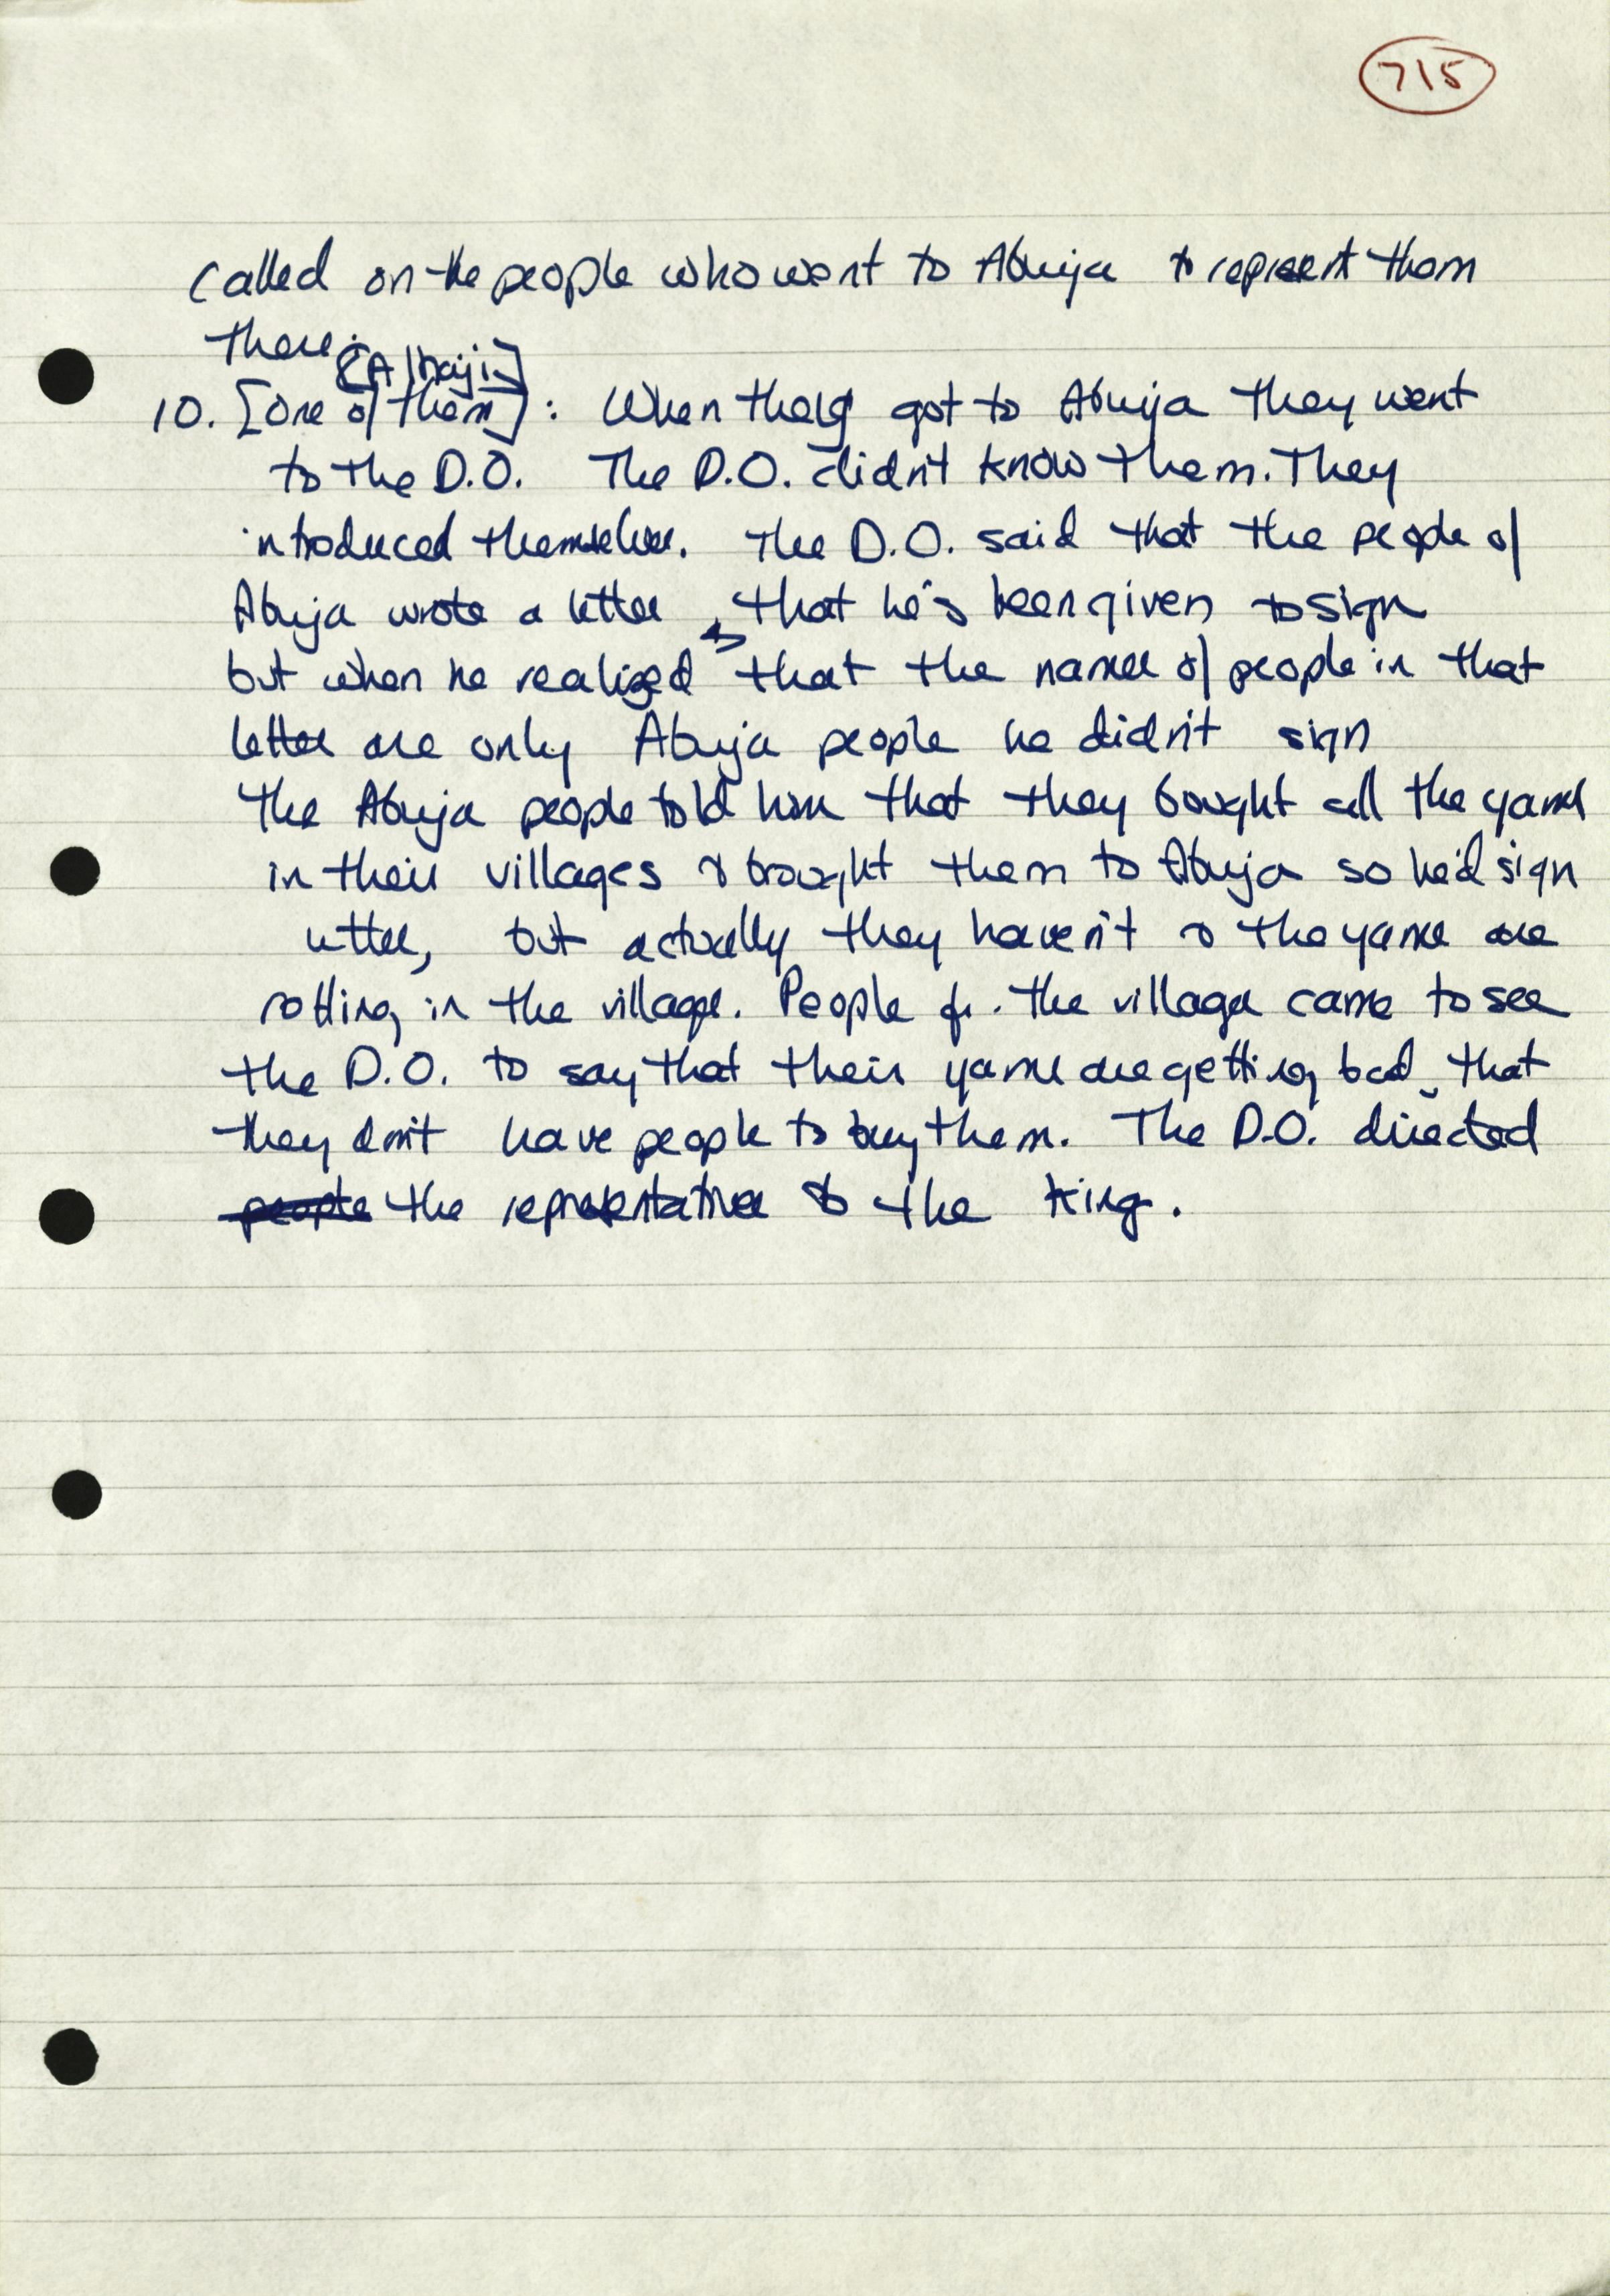 715
called on the people who went to Abuja to represent them
there.
[Alhaji]
10. [One of them]: When they got to Abuja they went
to the D.O. The D.O. didn't know them. They
introduced themselves. The D.O. said that the people of
Abuja wrote a letter, that he's been given to sign
but when he realized that the names of people in that
letter are only Abuja people he didn't sign
The Abuja people told him that they bought all the yams
in their villages & brought them to Abuja so he'd sign
letter, but actually they haven't & the yams are
rotting in the village. People fr. the village came to see
the D.O. to say that their yams are getting bad, that
they don't have people to buy them. The D.O. directed
people the representatives to the King.